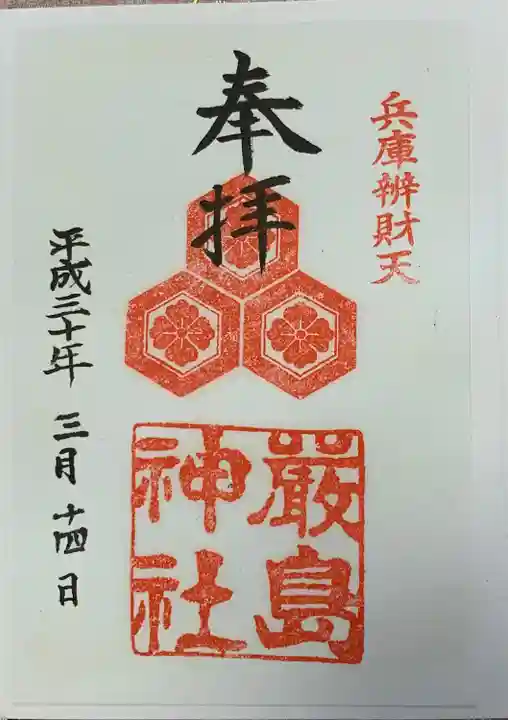 兵庫辨財天
奉拝
嚴島
神社
平成三十年 三月 十四日